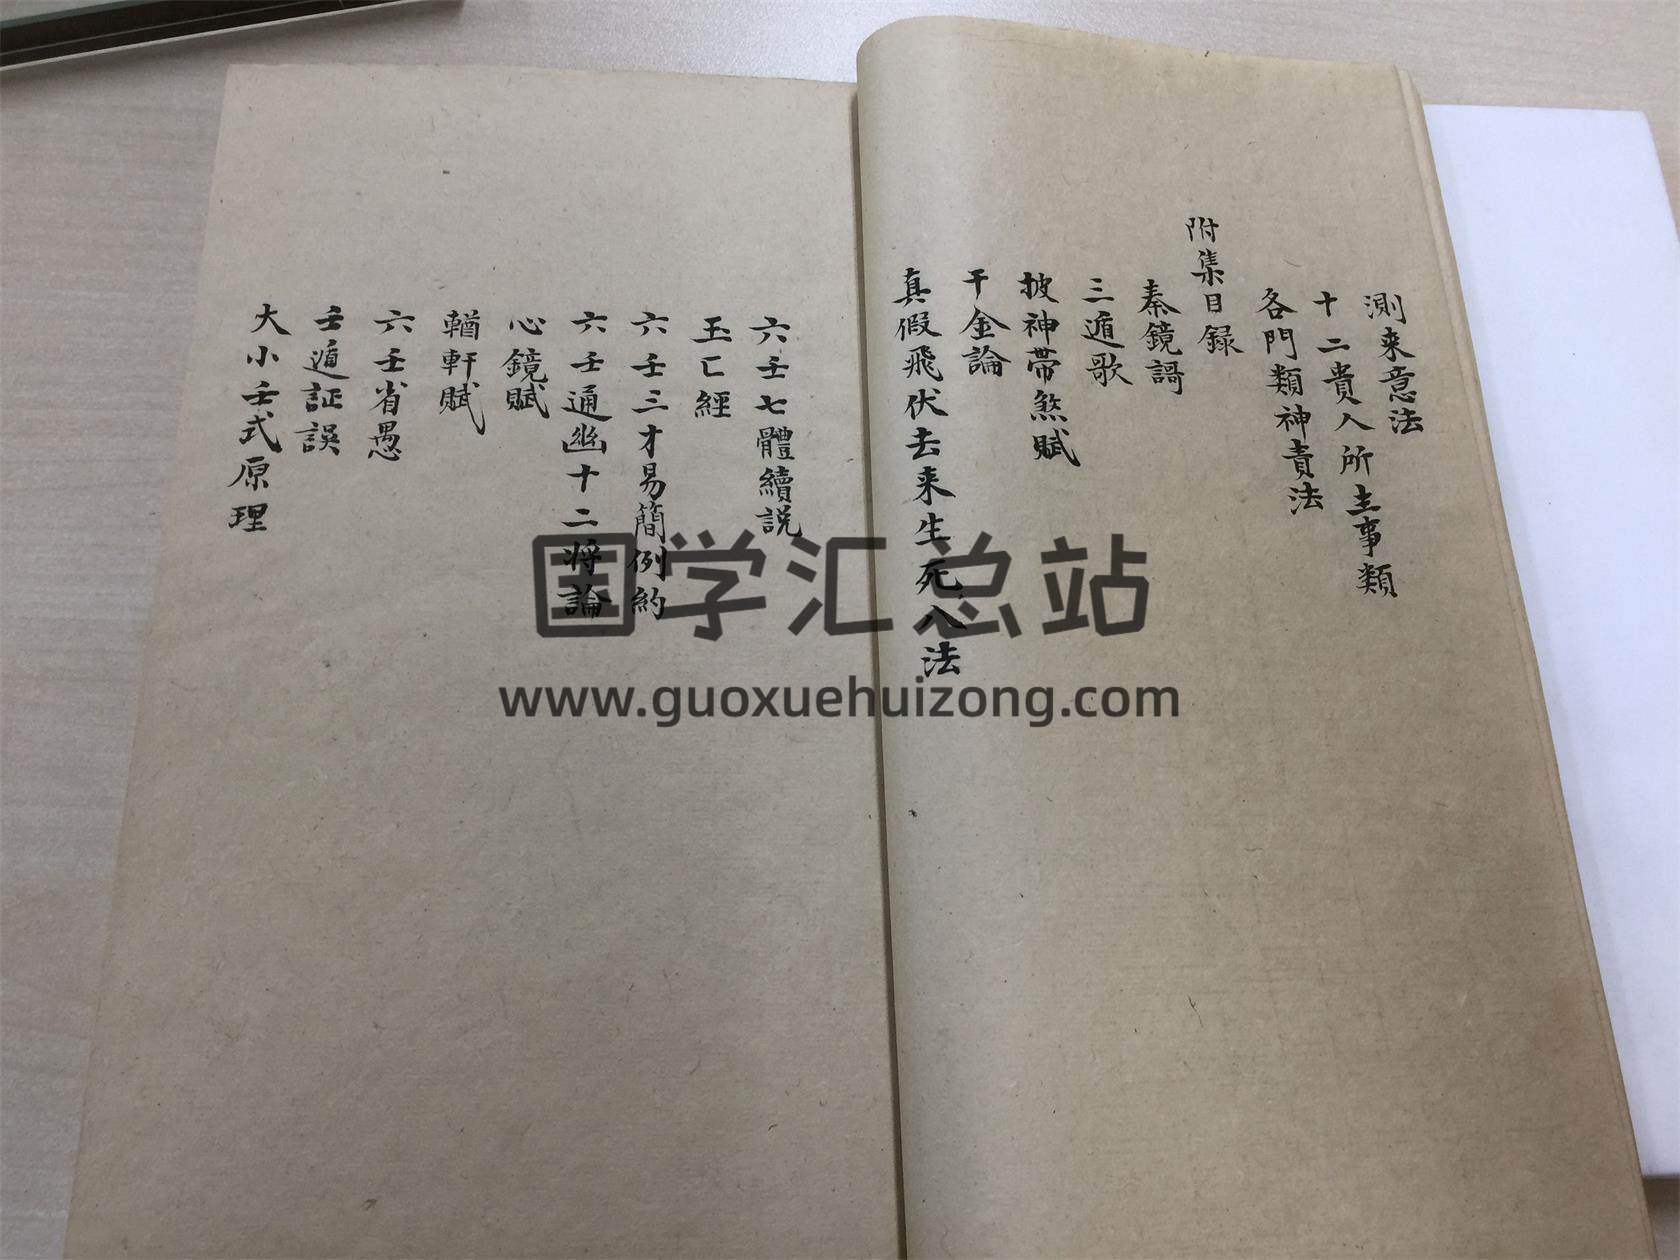 測来意法
十二貴人所主事類
各門類神責法
附集目録
秦鏡謌
三遁歌
披神帶煞賦
千金論
真假飛伏去来生死八法
六壬七體續説
玉匸經
六壬三才易簡例約
六壬通幽十二将論
心鏡賦
輶軒賦
六壬省愚
壬遁証誤
大小壬式原理
国学汇总站
www.guoxuehuizong.com